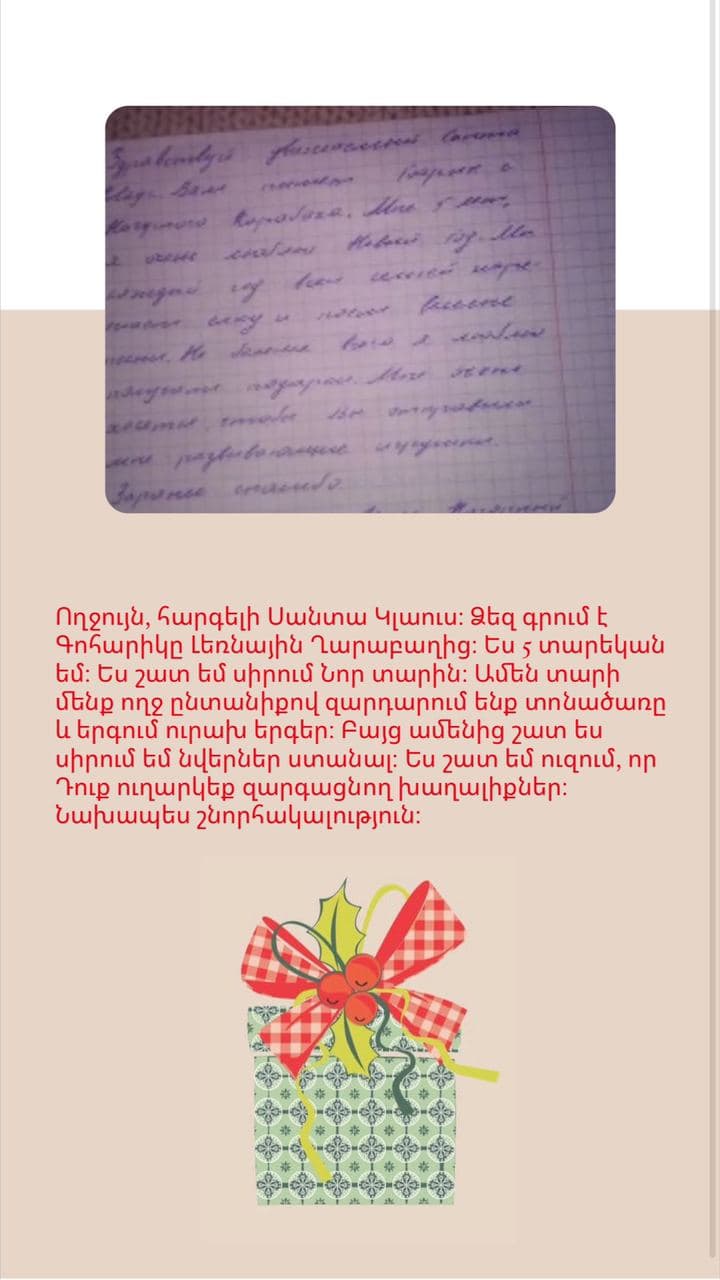 Здравствуй уважаемый Санта
Вам пишет Гоарик с
Нагорного Карабаха. Мне 5 лет,
я очень люблю Новый год. Мы
каждый год всей семьей наря-
елку и поем веселые
песни. Но больше всего я люблю
получать подарки. Мне очень
хочется, чтобы Вы отправили
мне развивающие игрушки.
Заранее спасибо.
Ողջույն, հարգելի Սանտա Կլաուս: Ձեզ գրում է
Գոհարիկը Լեռնային Ղարաբաղից: Ես 5 տարեկան
եմ: Ես շատ եմ սիրում Նոր տարին: Ամեն տարի
մենք ողջ ընտանիքով զարդարում ենք տոնածառը
և երգում ուրախ երգեր: Բայց ամենից շատ ես
սիրում եմ նվերներ ստանալ: Ես շատ եմ ուզում, որ
Դուք ուղարկեք զարգացնող խաղալիքներ:
Նախապես շնորհակալություն: